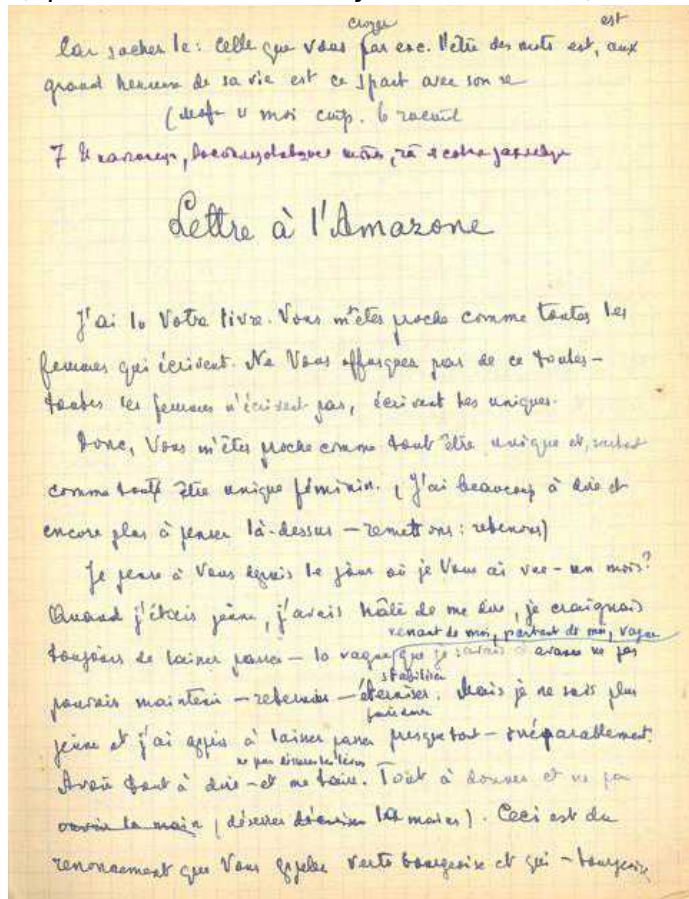 Car sachez le : celle que vous croyez par exc. l'être des mots est, aux
grand heureux de sa vie est ce avec son
moi
Lettre à l'Amazone
J'ai lu Votre livre. Vous m'êtes proche comme toutes les
femmes qui écrivent. Ne Vous offusquez pas de ce toutes –
toutes les femmes n'écrivent pas, écrivent les uniques.
Donc, Vous m'êtes proche comme tout être unique et, surtout
comme tout être unique féminin. (J'ai beaucoup à dire et
encore plus à penser là-dessus – remettons : retenons)
Je pense à Vous depuis le jour où je Vous ai vue – un mois?
Quand j'étais jeune, j'avais hâte de me dire, je craignais
venant de moi, partant de moi, vague
toujours de laisser passer – la vague que je avance ne pas
stabiliser
pouvoir maintenir – retenir – éterniser. Mais je ne suis plus
faire durer
jeune et j'ai appris à laisser passer presque tout – irréparablement.
ne pas desserrer les lèvres
Avoir tout à dire – et me taire. Tout à donner et ne pas
ouvrir la main (desserrer la main). Ceci est du
renoncement que Vous appelez vertu bourgeoise et qui – bourgeoise